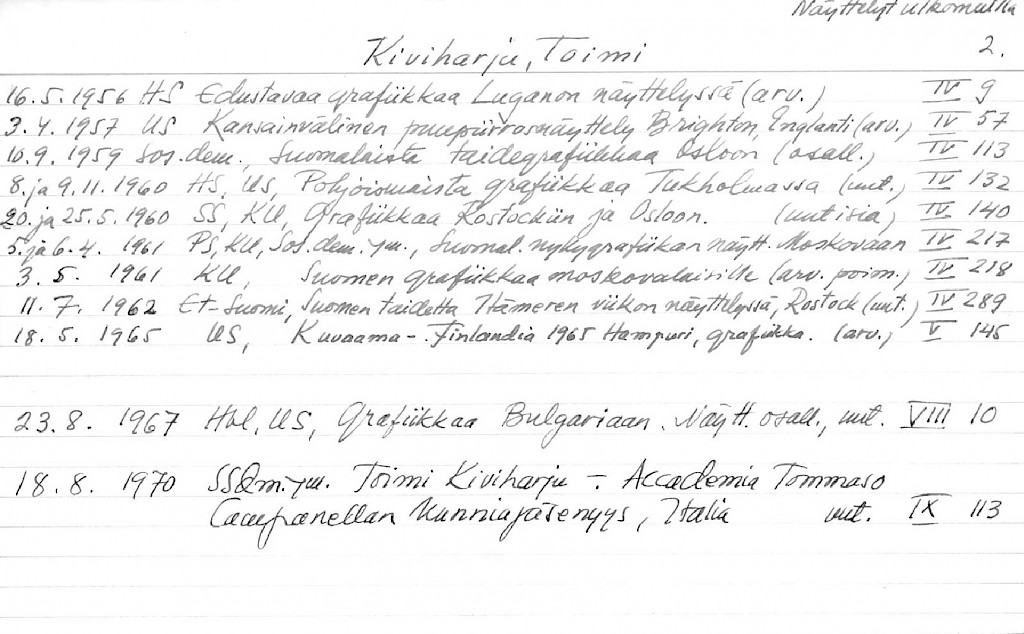 Näyttelyt ulkomailla
Kiviharju, Toimi 2.
16.5.1956 HS Edustavaa grafiikkaa Luganon näyttelyssä (arv.) IV 9
3.4.1957 US Kansainvälinen puupiirrosnäyttely Brighton, Englanti (arv.) IV 57
10.9.1959 Sos.dem., Suomalaista taidegrafiikkaa Osloon (osall.) IV 113
8. ja 9.11.1960 HS, US, Pohjoismaista grafiikkaa Tukholmassa (uut.) IV 132
20. ja 25.5.1960 SS, KU, Grafiikkaa Rostockiin ja Osloon. (uutisia) IV 140
5. ja 6.4. 1961 PS, KU, Sos.dem. ym., Suomal. nykygrafiikan näytt. Moskovaan IV 217
3. 5. 1961 KU, Suomen grafiikkaa moskovalaisille (arv. poim.) IV 218
11. 7. 1962 Et-Suomi, Suomen taidetta Itämeren viikon näyttelyssä, Rostock (uut.) IV 289
18. 5. 1965 US, Kuvaama - Finlandia 1965 Hampuri, grafiikka. (arv.) V 145
23.8. 1967 Hbl, US, Grafiikkaa Bulgariaan. Näytt. osall., uut. VIII 10
18.8. 1970 ym. Toimi Kiviharju - Accademia Tommaso
Campanellan kunniajäsenyys, Italia uut. IX 113